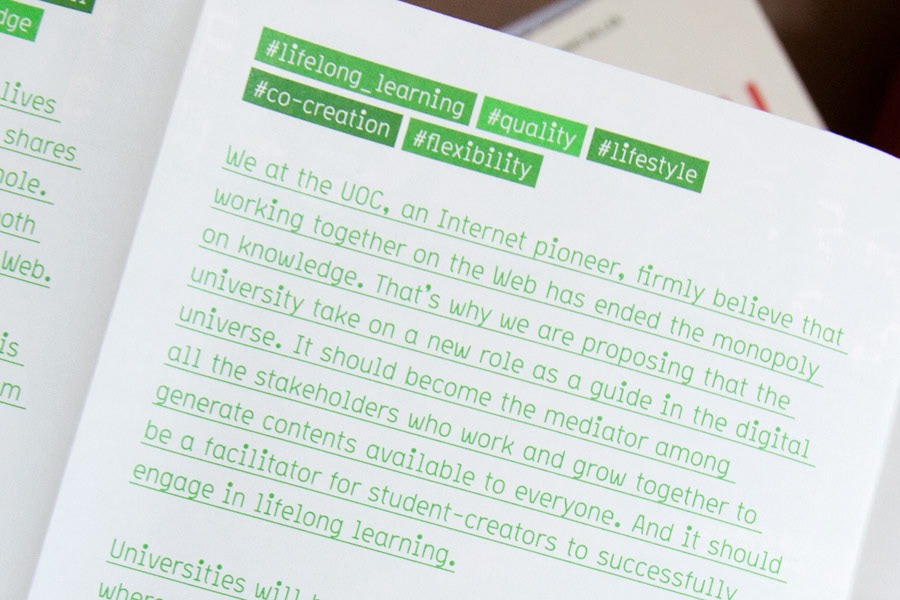 dge
lives
shares
hole.
oth
Web.
is
m
#lifelong_learning #quality #lifestyle
#co-creation #flexibility
We at the UOC, an Internet pioneer, firmly believe that
working together on the Web has ended the monopoly
on knowledge. That's why we are proposing that the
university take on a new role as a guide in the digital
universe. It should become the mediator among
all the stakeholders who work and grow together to
generate contents available to everyone. And it should
be a facilitator for student-creators to successfully
engage in lifelong learning.
Universities will
where